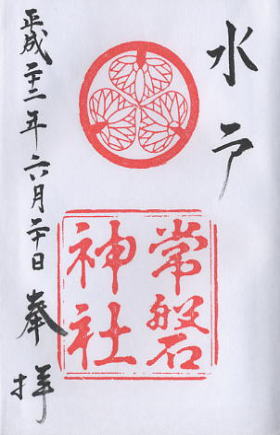 水戸
常磐
神社
平成二十二年六月二十日 奉拝